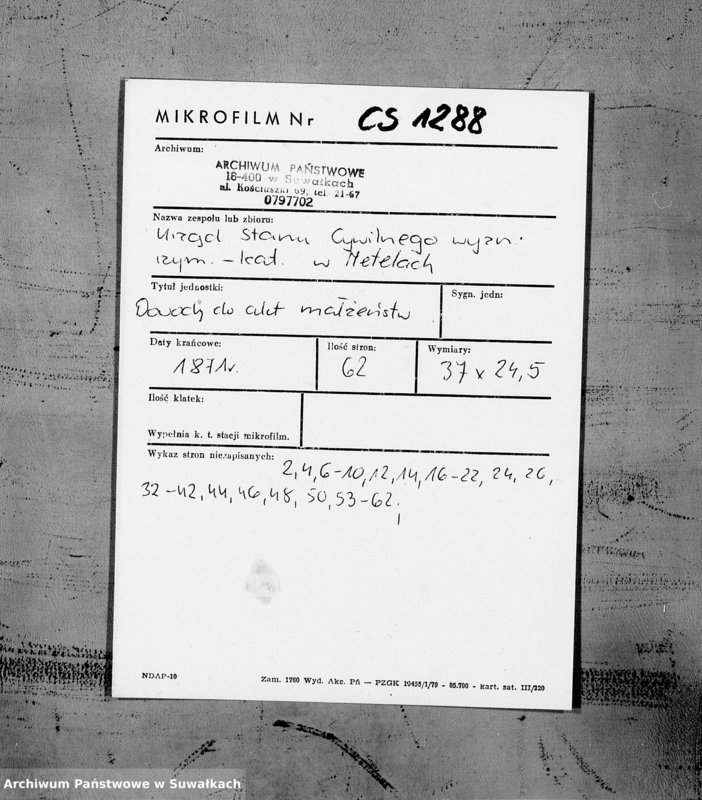 MIKROFILM Nr CS 1288
Archiwum:
ARCHIWUM PAŃSTWOWE
16-400 w Suwałkach
ul. Kościuszki 69, tel. 21-67
0797702
Nazwa zespołu lub zbioru:
Urząd Stanu Cywilnego wyzn.
rzym. - kat. w Metelach
Tytuł jednostki:
Sygn. jedn:
Dowody do akt małżeństw
Daty krańcowe:
Ilość stron:
Wymiary:
1871r.
62
37 x 24,5
Ilość klatek:
Wypełnia k. t. stacji mikrofilm.
Wykaz stron niezapisanych:
2,4,6-10,12,14,16-22, 24, 26,
32-42, 44, 46, 48, 50, 53-62.
NDAP-10
Zam. 1760 Wyd. Akc. Pń — PZGK 10455/I/79 - 85.700 - kart. sat. III/220
Archiwum Państwowe w Suwałkach